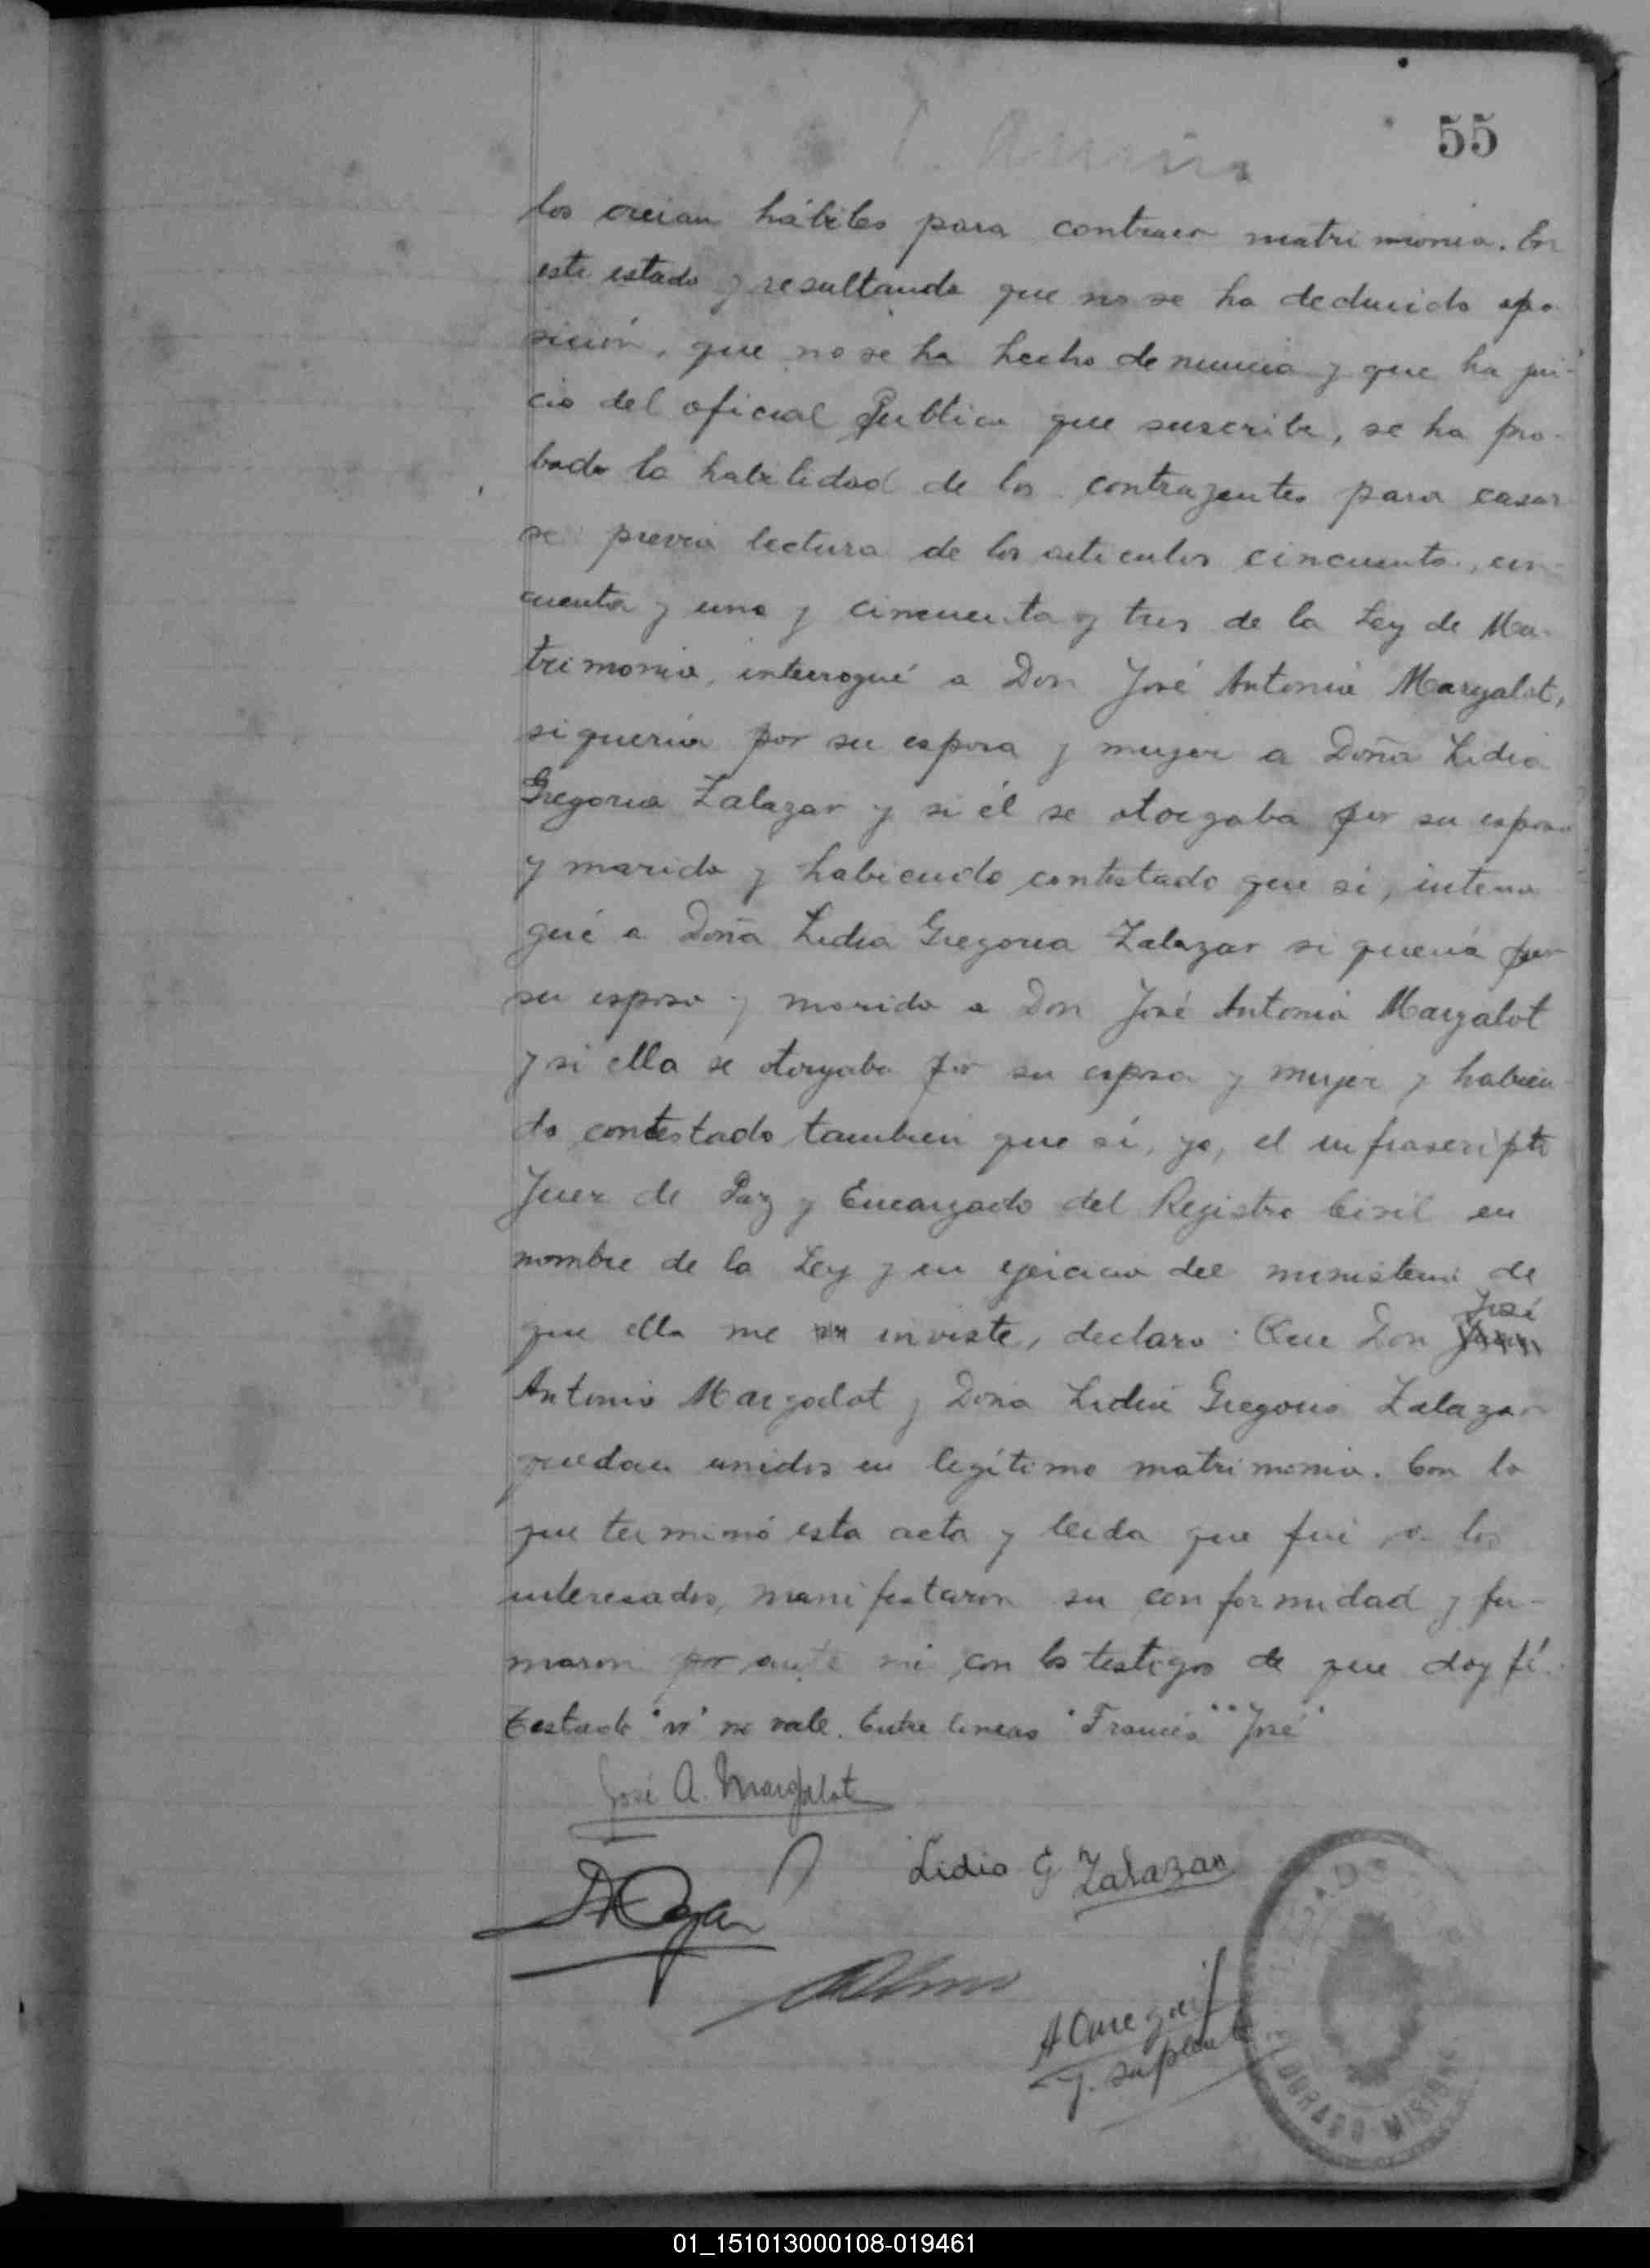 55
los creian hábiles para contraer matrimonio. En
este estado y resultando que no se ha deducido opo-
sición, que no se ha hecho denuncia y que ha jui-
cio del oficial Publico que suscribe, se ha pro-
bado la habilidad de los contrayentes para casar
se previa lectura de los articulos cincuenta, cin-
cuenta y uno y cincuenta y tres de la Ley de Ma-
trimonio, interrogué a Don José Antonio Margalot,
si queria por su esposa y mujer a Doña Lidia
Gregoria Zalazar y si él se otorgaba por su esposo
y marido y habiendo contestado que si, interro
gué a Doña Lidia Gregoria Zalazar si queria por
su esposo y marido a Don José Antonio Margalot
y si ella se otorgaba por su esposa y mujer y habien-
do contestado tambien que si, yo, el infrascripto
Juez de Paz y Encargado del Registro Civil en
nombre de la Ley y en ejercicio del ministerio de
José
que ella me inviste, declaro: Que Don
Antonio Margalot y Doña Lidia Gregoria Zalazar
quedan unidos en legítimo matrimonio. Con lo
que terminó esta acta y leida que fué a los
interesados, manifestaron su conformidad y fir-
maron por ante mi con los testigos de que doy fé.
Testado "vi" no vale. Entre lineas "Francés" "José"
José A. Margalot
Lidia G Zalazar
J. Suplente
DORADO MISIONES
01_151013000108-019461